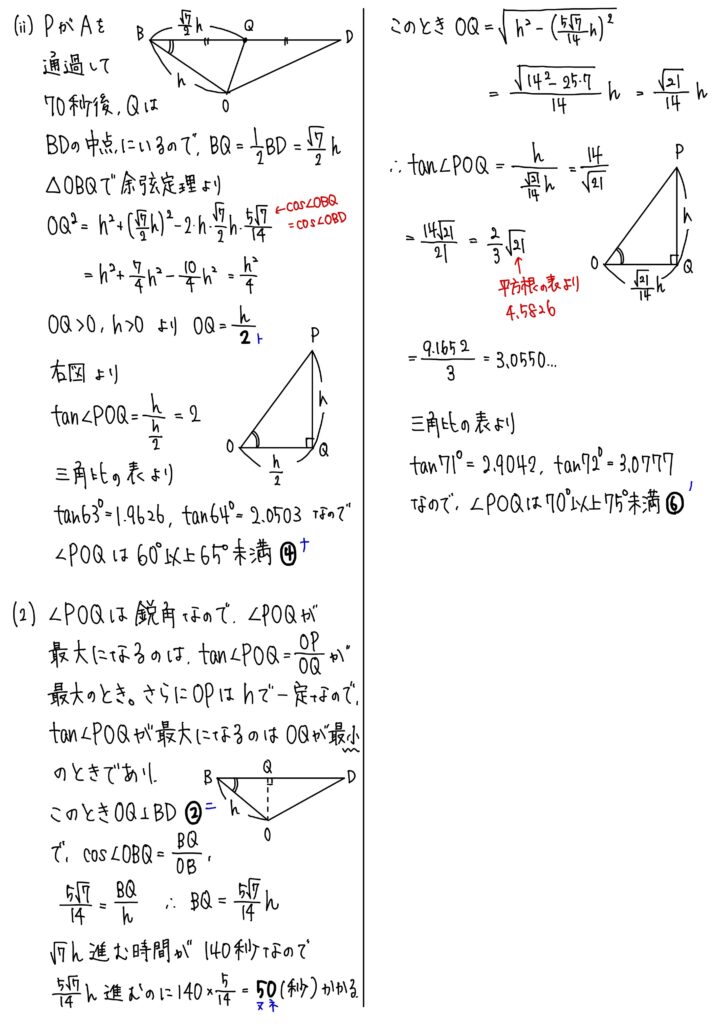 (ii) PがAを
通過して
70秒後、Qは
BDの中点にいるので、BQ=1/2BD=√7/2h
△OBQで余弦定理より
OQ²=h²+(√7/2h)²-2・h・√7/2h・5√7/14 ←cos∠OBQ
=cos∠OBD
=h²+7/4h²-10/4h²=h²/4
OQ>0, h>0 より OQ=h/2 ト
右図より
tan∠POQ=h/(h/2)=2
三角比の表より
tan63°=1.9626, tan64°=2.0503 なので
∠POQは60°以上65°未満 ④ ナ
B √7/2h Q D
h
O
P
h
O Q
h/2
(2) ∠POQは鋭角なので、∠POQが
最大になるのは、tan∠POQ=OP/OQが
最大のとき。さらにOPはhで一定なので、
tan∠POQが最大になるのはOQが最小
のときであり、
このときOQ⊥BD ② ニ
で、cos∠OBQ=BQ/OB,
5√7/14=BQ/h ∴ BQ=5√7/14h
√7h進む時間が140秒なので
5√7/14h進むのに140×5/14=50(秒)かかる
ヌネ
B Q D
h
O
このとき OQ=√(h²-(5√7/14h)²)
=√(14²-25・7)/14 h =√21/14 h
∴ tan∠POQ=h/(√21/14h)=14/√21
=14√21/21=2/3√21
↑
平方根の表より
4.5826
=9.1652/3=3.0550...
三角比の表より
tan71°=2.9042, tan72°=3.0777
なので、∠POQは70°以上75°未満 ⑥ ノ
P
h
O Q
√21/14h